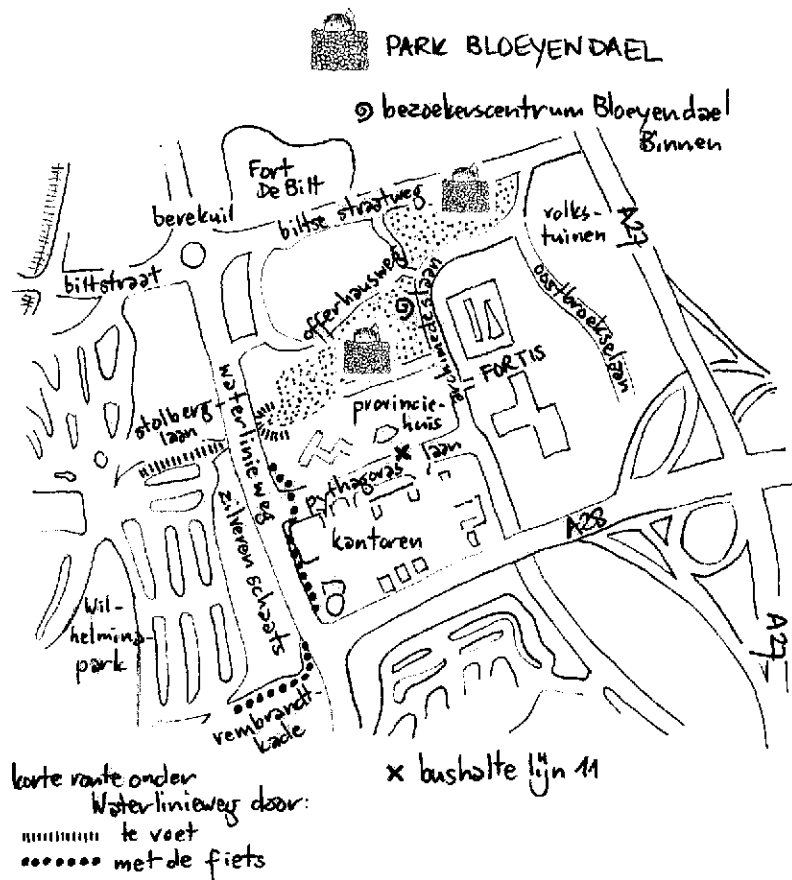 PARK BLOEYENDAEL
bezoekerscentrum Bloeyendael
Binnen
Fort
De Bilt
berekuil
biltse straatweg
volks-
tuinen
A27
biltstraat
offerhausweg
archimedeslaan
oostbroekselaan
FORTIS
waterlinieweg
stolberg-
laan
provincie-
huis
pythagoras laan
zilveren schaats
kantoren
A28
Wil-
helmina-
park
A27
rembrandt-
kade
korte route onder
Waterlinieweg door:
te voet
met de fiets
x bushalte lijn 11